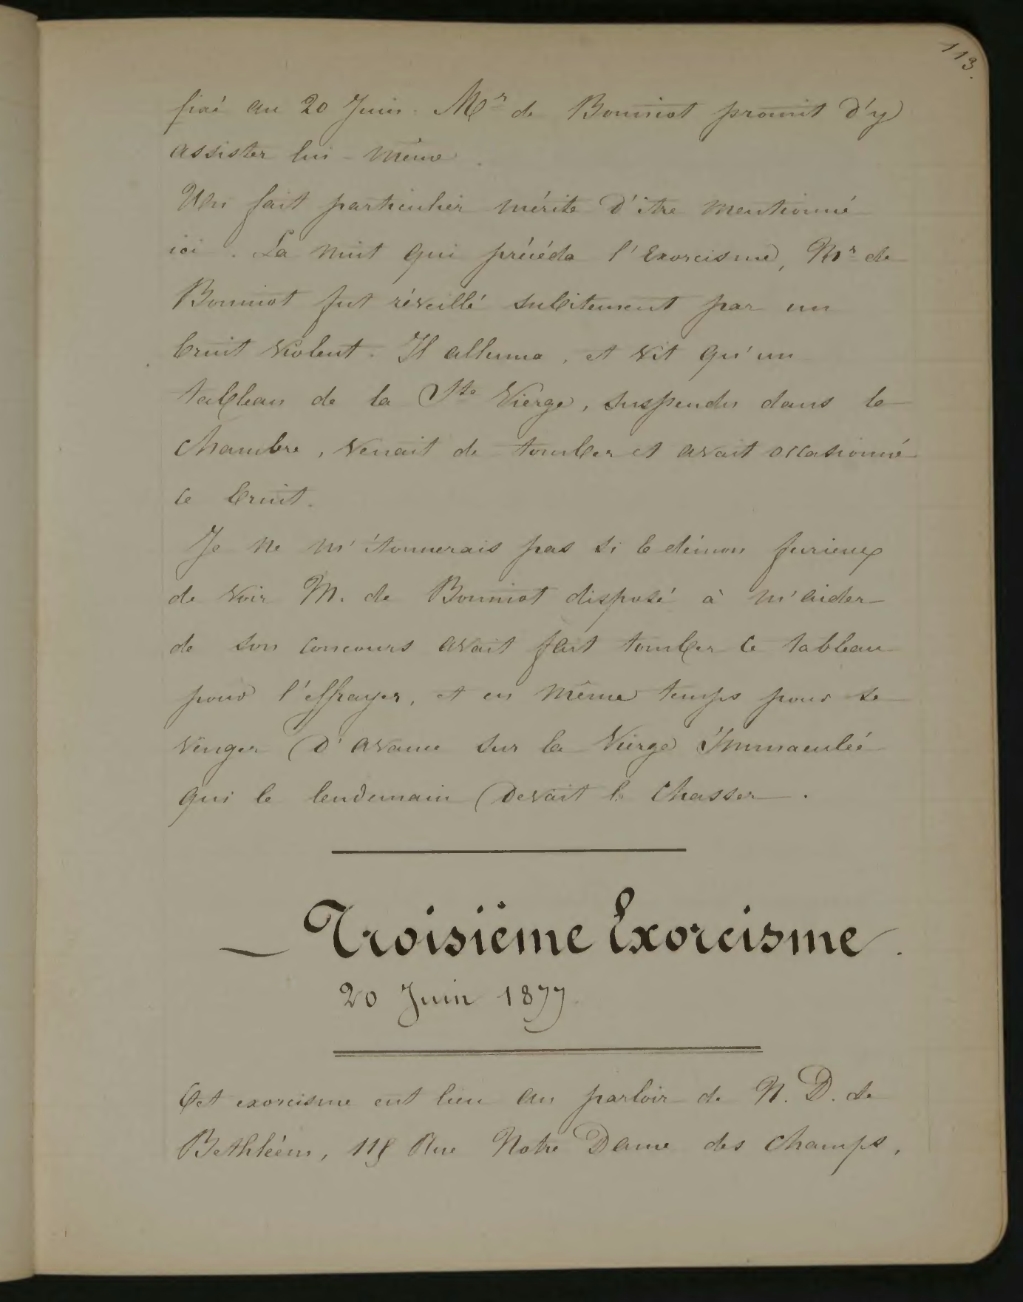 113.
fixé au 20 Juin. Mr de Bonniot promit d'y
assister lui-même.
Un fait particulier mérite d'être mentionné
ici. La nuit qui précéda l'Exorcisme, Mr de
Bonniot fut réveillé subitement par un
bruit violent. Il alluma, et vit qu'un
tableau de la Ste Vierge, suspendu dans le
chambre, venait de tomber et avait occasionné
ce bruit.
Je ne m'étonnerais pas si le démon furieux
de voir M. de Bonniot disposé à m'aider
de son concours avait fait tomber ce tableau
pour l'effrayer, et en même temps pour se
venger d'avance sur la Vierge Immaculée
qui le lendemain devait le chasser.
— Troisième Exorcisme.
20 Juin 1877.
Cet exorcisme eut lieu au parloir de N. D. de
Bethléem, Rue Notre Dame des Champs,